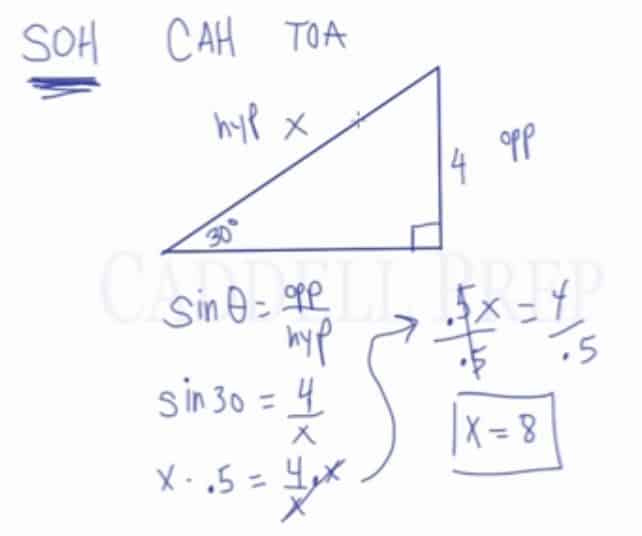 SOH CAH TOA
hyp x
4 opp
30°
CADDELL PREP
sin θ = opp/hyp
sin 30 = 4/x
x · .5 = 4/x · x
.5x/.5 = 4/.5
x = 8